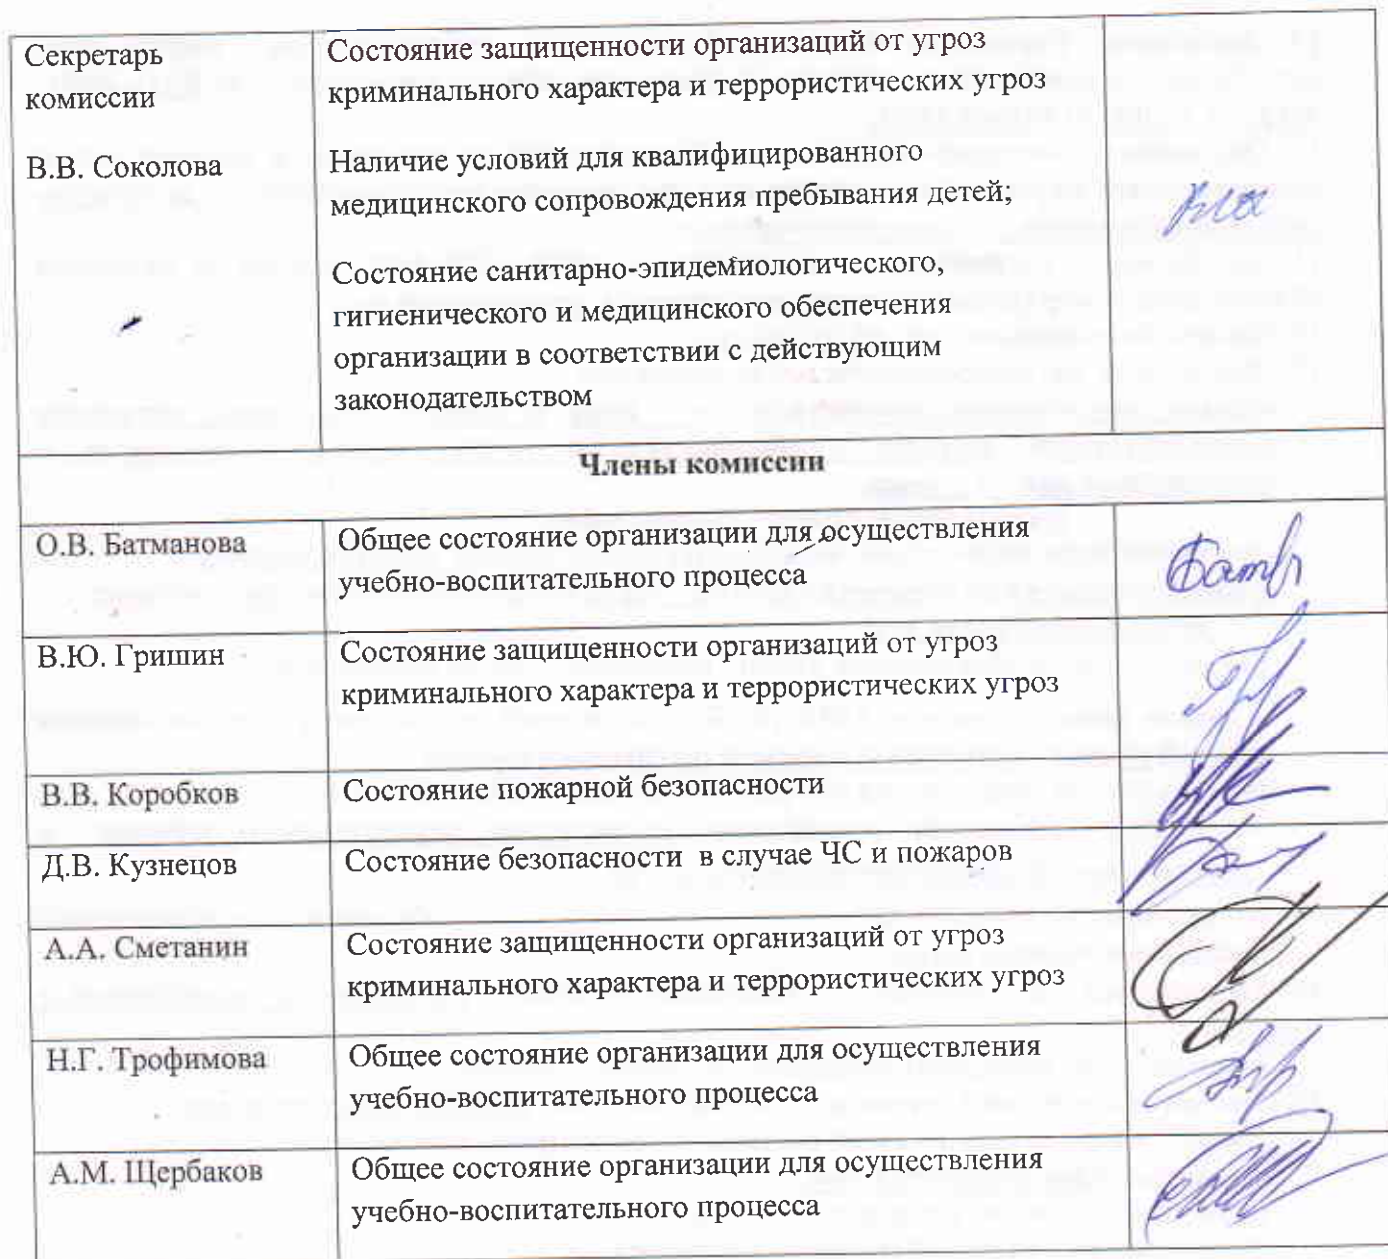 Секретарь
комиссии
В.В. Соколова
Состояние защищенности организаций от угроз
криминального характера и террористических угроз
Наличие условий для квалифицированного
медицинского сопровождения пребывания детей;
Состояние санитарно-эпидемиологического,
гигиенического и медицинского обеспечения
организации в соответствии с действующим
законодательством
Члены комиссии
О.В. Батманова
Общее состояние организации для осуществления
учебно-воспитательного процесса
В.Ю. Гришин
Состояние защищенности организаций от угроз
криминального характера и террористических угроз
В.В. Коробков
Состояние пожарной безопасности
Д.В. Кузнецов
Состояние безопасности в случае ЧС и пожаров
А.А. Сметанин
Состояние защищенности организаций от угроз
криминального характера и террористических угроз
Н.Г. Трофимова
Общее состояние организации для осуществления
учебно-воспитательного процесса
А.М. Щербаков
Общее состояние организации для осуществления
учебно-воспитательного процесса